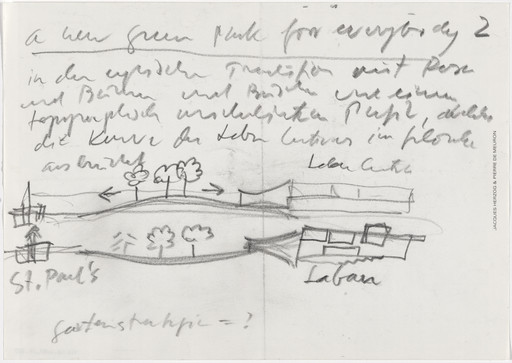 a new green Park for everybody 2
in der englischen Tradition mit Rasen
und Bäumen und Büschen und einem
topographisch Profil,
die Kurve des Laban Centres im
ausbreitet
Laban Centre
St. Paul's
Laban
Gartenstrategie = ?
JACQUES HERZOG & PIERRE DE MEURON